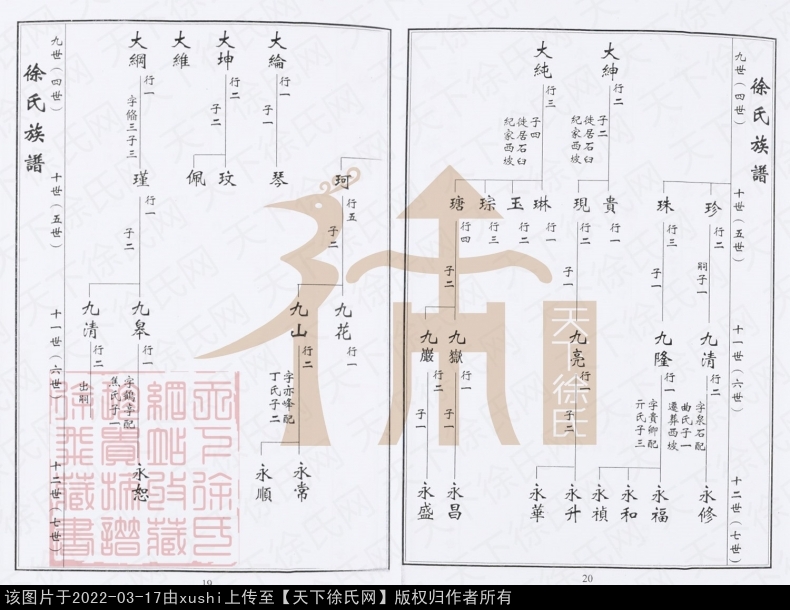 徐氏族譜
九世（四世）
十世（五世）
十一世（六世）
十二世（七世）
大紳
行二
子二
徙居石臼
紀家西坡
大純
行三
子四
徙居石臼
紀家西坡
珍
行二
嗣子一
珠
行三
子一
貴
行一
現
行二
子一
琳
行一
玉
行二
琮
行三
瑭
行四
子二
九清
行二
字泉石配
曲氏子一
九隆
行一
字貴卿配
亓氏子三
遷葬西坡
九亮
行一
子二
九嶽
行一
子一
九巖
行二
子一
永修
永福
永和
永禎
永升
永華
永昌
永盛
20
大綸
行一
子一
大坤
行二
子二
大維
大綱
行一
字脩三子三
徐氏族譜
九世（四世）
十世（五世）
十一世（六世）
十二世（七世）
珂
行五
子二
琴
玟
佩
瑾
行一
子二
九花
行一
九山
行二
字亦峰配
丁氏子二
九皋
行一
字鶴亭配
焦氏子一
九清
行二
出嗣
永常
永順
永恕
19
天下徐氏
该图片于2022-03-17由xushi上传至【天下徐氏网】版权归作者所有